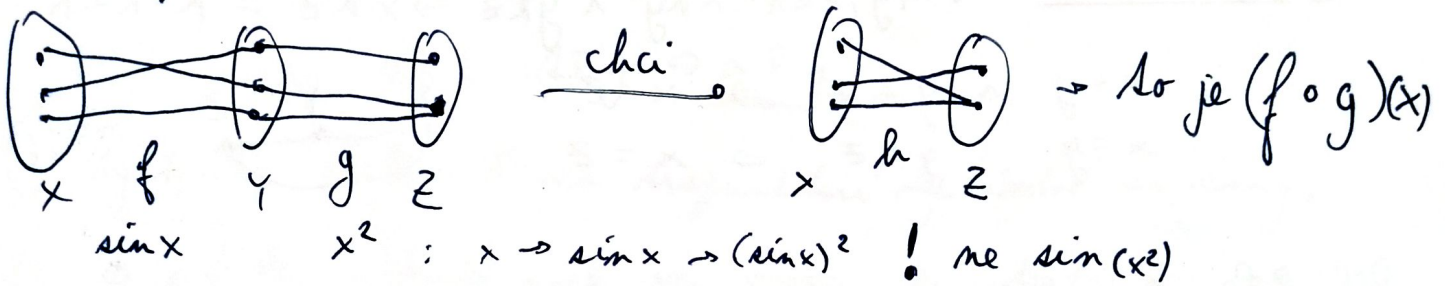 chci → to je (f ∘ g)(x)
X f Y g Z X h Z
sin x x² : x → sin x → (sin x)² ! ne sin(x²)